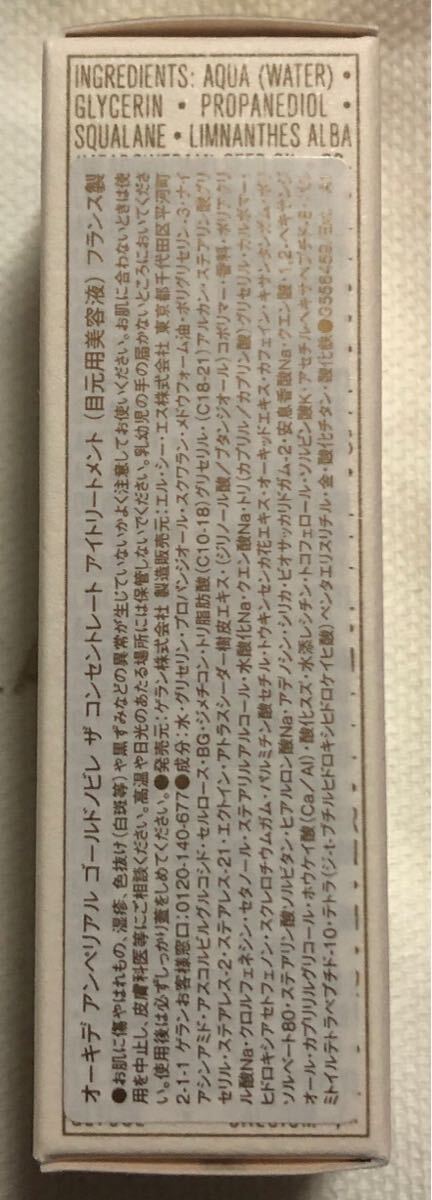 INGREDIENTS: AQUA (WATER) •
GLYCERIN • PROPANEDIOL •
SQUALANE • LIMNANTHES ALBA
オーキデ アンペリアル ゴールドノビレ ザ コンセントレート アイトリートメント (目元用美容液) フランス製
●お肌に傷やはれもの、湿疹、色抜け(白斑等)や黒ずみなどの異常が生じていないかよく注意してお使いください。お肌に合わないときは使
用を中止し、皮膚科医等にご相談ください。高温や日光のあたる場所には保管しないでください。乳幼児の手の届かないところにおいてくださ
い。使用後は必ずしっかり蓋をしめてください。●発売元:ゲラン株式会社 製造販売元:エル・シー・エス株式会社 東京都千代田区平河町
2-1-1 ゲランお客様窓口:0120-140-677●成分:水・グリセリン・プロパンジオール・スクワラン・メドウフォーム油・ポリグリセリン-3・ナイ
アシンアミド・アスコルビルグルコシド・セルロース・BG・ジメチコン・トリ脂肪酸(C10-18)グリセリル・(C18-21)アルカン・ステアリン酸グリ
セリル・ステアレス-2・ステアレス-21・エクトイン・アトラスシーダー樹皮エキス・(ジリノール酸/ブタンジオール)コポリマー・香料・ポリアクリ
ル酸Na・クロルフェネシン・セタノール・ステアリルアルコール・水酸化Na・クエン酸Na・トリ(カプリル/カプリン酸)グリセリル・カルボマー・
ヒドロキシアセトフェノン・スクレロチウムガム・パルミチン酸セチル・トウキンセンカ花エキス・オーキッドエキス・カフェイン・キサンタンガム・ポリ
ソルベート80・ステアリン酸ソルビタン・ヒアルロン酸Na・アデノシン・シリカ・ビオサッカリドガム-2・安息香酸Na・クエン酸・1,2-ヘキサンジ
オール・カプリリルグリコール・ホウケイ酸(Ca/Al)・酸化スズ・水添レシチン・トコフェロール・ソルビン酸K・アセチルヘキサペプチド-8・パル
ミトイルテトラペプチド-10・テトラ(ジ-t-ブチルヒドロキシヒドロケイヒ酸)ペンタエリスリチル・金・酸化チタン・酸化鉄●